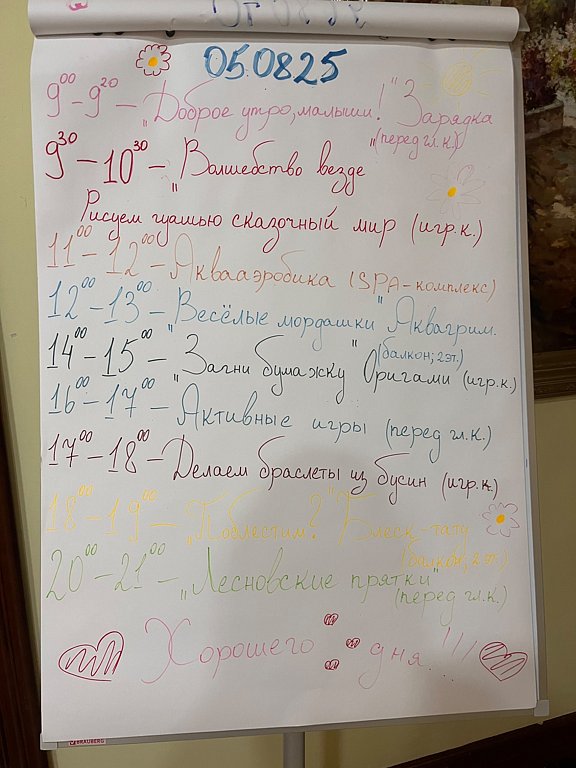 05.08.25
9⁰⁰ - 9²⁰ - "Доброе утро, малыши!" Зарядка
(перед гл.к.)
9³⁰ - 10³⁰ - "Волшебство везде
Рисуем гуашью сказочный мир (игр.к.)
11⁰⁰ - 12⁰⁰ - Аквааэробика (SPA-комплекс)
12⁰⁰ - 13⁰⁰ - "Весёлые мордашки" Аквагрим.
(балкон; 2эт.)
14⁰⁰ - 15⁰⁰ - "Загни бумажку" Оригами (игр.к.)
16⁰⁰ - 17⁰⁰ - Активные игры (перед гл.к.)
17⁰⁰ - 18⁰⁰ - Делаем браслеты из бусин (игр.к.)
18⁰⁰ - 19⁰⁰ - "Поблестим?" Блеск-тату
(балкон, 2 эт.)
20⁰⁰ - 21⁰⁰ - "Лесновские прятки"
(перед гл.к.)
Хорошего дня...!!!
BRAUBERG